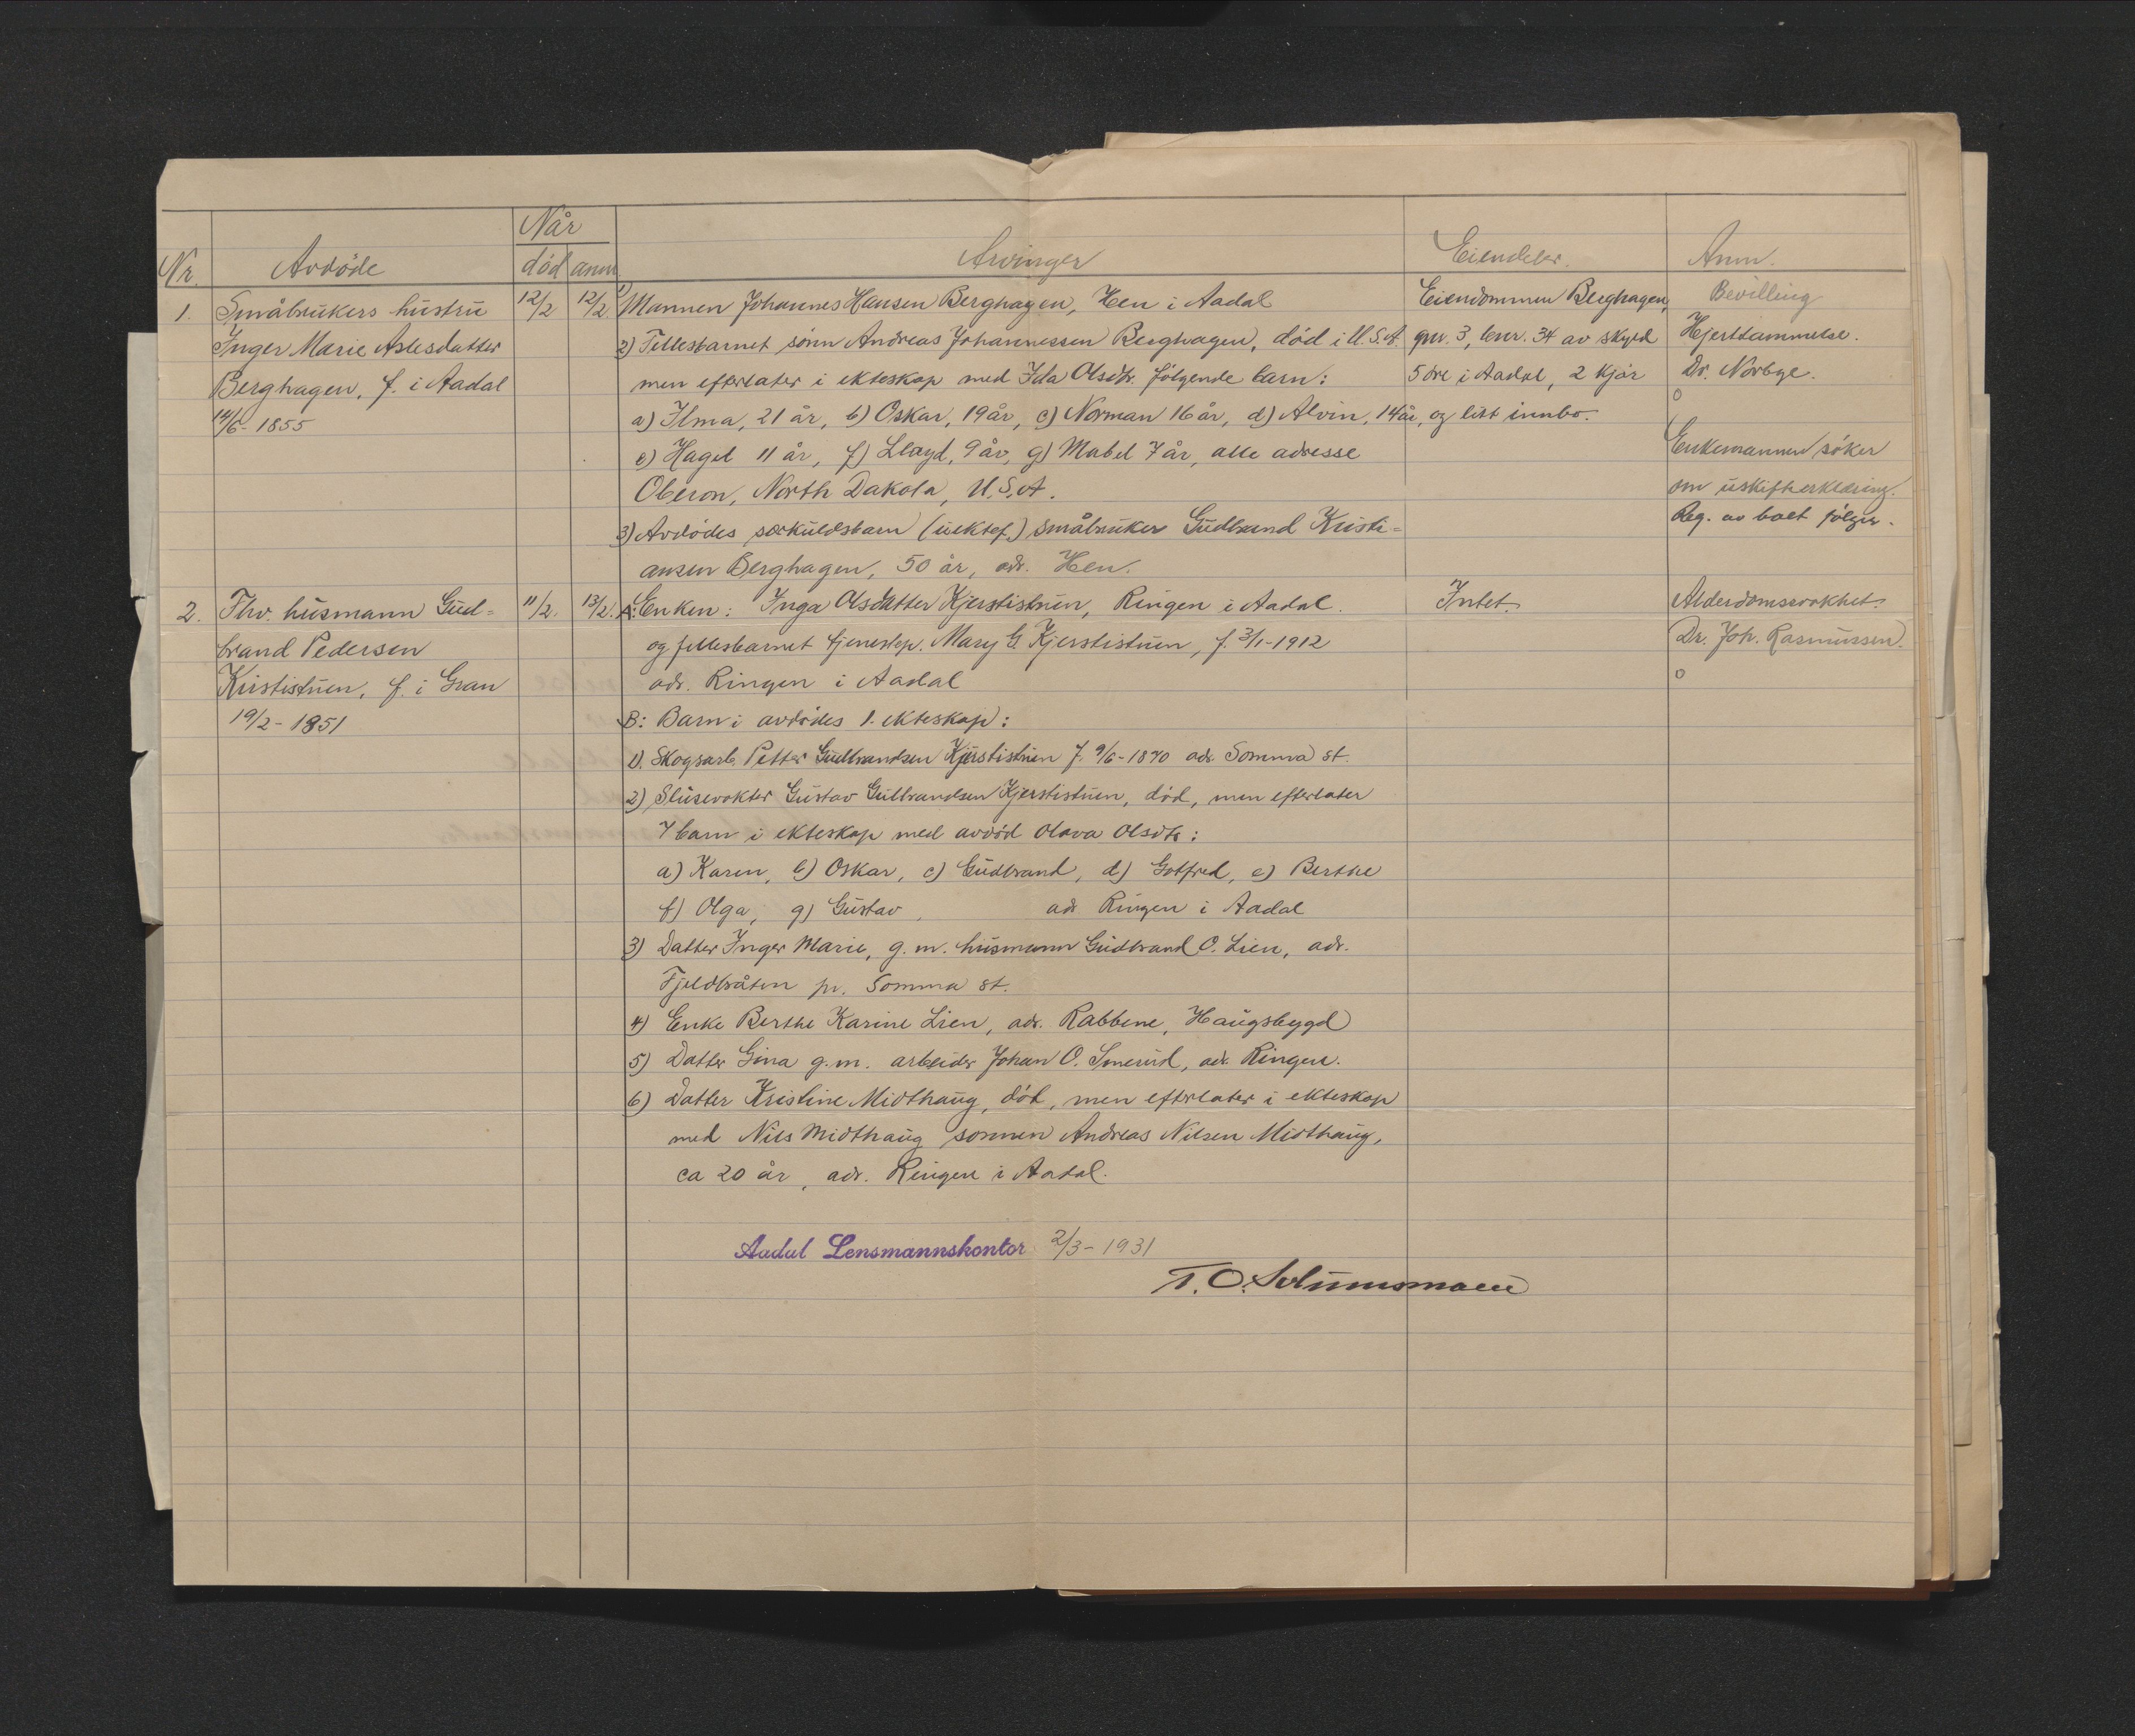 Når
Nr. Avdöde död anm Arvinger Eiendeler. Anm.
1. Småbrukers hustru 12/2 12/2. 1) Mannen Johannes Hansen Berghagen, Hen i Aadal Eiendommen Berghagen, Bevilling
Inger Marie Aslesdatter 2) Fellesbarnet sönn Andreas Johannessen Berghagen, död i U.S.A. gnr. 3, bnr. 34 av skyld Hjertlammelse.
Berghagen, f. i Aadal men efterlater i ekteskap med Ida Olsdtr. fölgende barn: 5 öre i Aadal, 2 kjör Dr. Norbye.
14/6-1855 a) Ilma, 21 år, b) Oskar, 19 år, c) Norman 16 år, d) Alvin, 14 år, og litt innbo. o
e) Hagel 11 år, f) Lloyd, 9 år, g) Mabel 7 år, alle adresse Enkemannen söker
Oberon, North Dakota, U.S.A. om uskifterklæring.
3) Avdödes særkuldsbarn (uektef.) småbruker Gudbrand Kristi= Reg. av boet fölger.
ansen Berghagen, 50 år, adr. Hen.
2. Fhv. husmann Gud= 11/2. 13/2. A: Enken: Inga Olsdatter Kjerstistuen, Ringen i Aadal. Intet. Alderdomssvakhet.
brand Pedersen og fellesbarnet tjenestep. Mary G. Kjerstistuen, f. 3/1-1912 Dr. Joh. Rasmussen.
Kirstistuen, f. i Gran adr. Ringen i Aadal o
19/2-1851 B: Barn i avdödes 1. ekteskap:
1). Skogsarb. Petter Gudbrandsen Kjerstistuen f. 9/6-1870 adr. Somma st.
2) Slusevokter Gustav Gulbrandsen Kjerstistuen, död, men efterlater
7 barn i ekteskap med avdöd Olava Olsdtr:
a) Karen, b) Oskar, c) Gudbrand, d) Gotfred, e) Berthe
f) Olga, g) Gustav, adr Ringen i Aadal
3) Datter Inger Marie, g.m. husmann Gudbrand O. Lien, adr.
Fjeldbråten pr. Somma st.
4) Enke Berthe Karine Lien, adr. Rabbene, Haugsbygd
5) Datter Gina g.m. arbeider Johan O. Smerud, adr. Ringen.
6) Datter Kristine Midthaug, död, men efterlater i ekteskap
med Nils Midthaug sönnen Andreas Nilsen Midthaug,
ca 20 år, adr. Ringen i Aadal.
Aadal Lensmannskontor 2/3-1931
T. O.